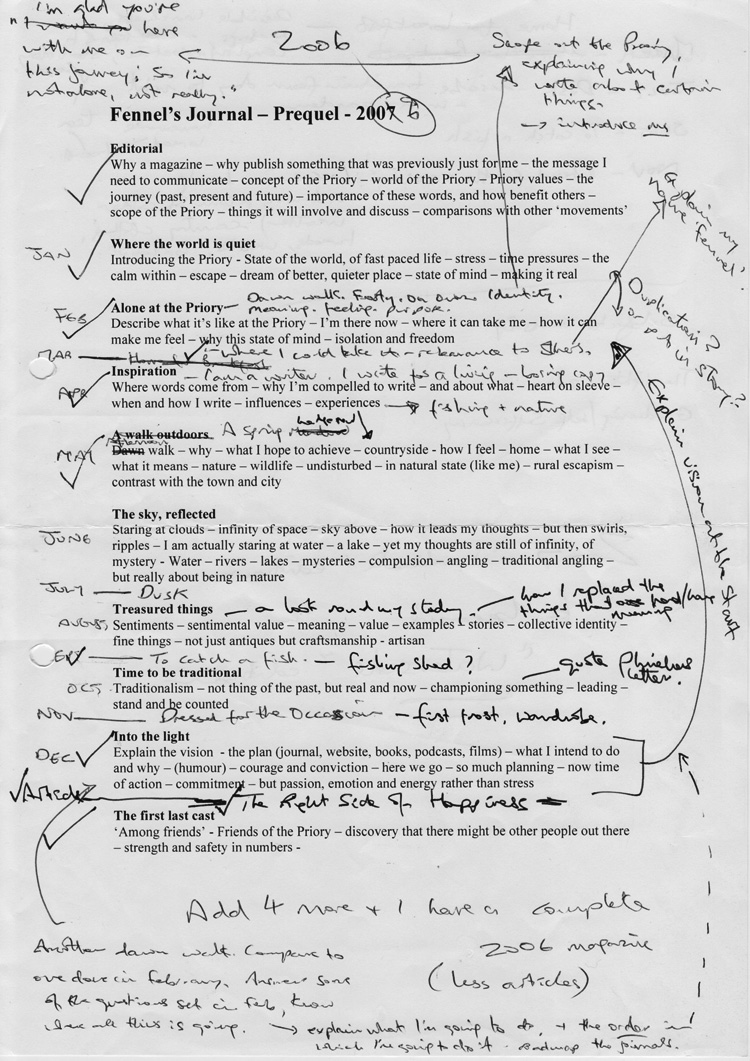 "I'm glad you're
here
with me on
this journey; so I'm
not alone, not really."
2006
Scope out the Priory,
explaining why I
write about certain
things.
→ introduce my
Fennel's Journal – Prequel - 2007 6
Editorial
Why a magazine – why publish something that was previously just for me – the message I
need to communicate – concept of the Priory – world of the Priory – Priory values – the
journey (past, present and future) – importance of these words, and how benefit others –
scope of the Priory – things it will involve and discuss – comparisons with other 'movements'
Explain my
name 'Fennel'.
JAN
Where the world is quiet
Introducing the Priory - State of the world, of fast paced life – stress – time pressures – the
calm within – escape – dream of better, quieter place – state of mind – making it real
FEB
Alone at the Priory – Dawn walk. Frosty. On own. Identity.
meaning. feeling. purpose.
Describe what it's like at the Priory – I'm there now – where it can take me – how it can
make me feel – why this state of mind – isolation and freedom
Duplication?
or ok in story?
MAR – where I could take it – relevance to others.
APR
Inspiration – I am a writer. I write for a living – boring copy
Where words come from – why I'm compelled to write – and about what – heart on sleeve –
when and how I write – influences – experiences → fishing + nature
MAY
A walk outdoors A Spring
Dawn walk – why – what I hope to achieve – countryside - how I feel – home – what I see –
what it means – nature – wildlife – undisturbed – in natural state (like me) – rural escapism –
contrast with the town and city
Explain vision at the start
JUNE
The sky, reflected
Staring at clouds – infinity of space – sky above – how it leads my thoughts – but then swirls,
ripples – I am actually staring at water – a lake – yet my thoughts are still of infinity, of
mystery - Water – rivers – lakes – mysteries – compulsion – angling – traditional angling –
but really about being in nature
JULY – Dusk
Treasured things – a look round my study – how I replaced the
things that
meaning
AUGUST
Sentiments – sentimental value – meaning – value – examples – stories – collective identity –
fine things – not just antiques but craftsmanship - artisan
SEPT – To catch a fish. – fishing shed?
Time to be traditional – quote
letter.
OCT
Traditionalism – not thing of the past, but real and now – championing something – leading –
stand and be counted
NOV – Dressed for the Occasion – first frost, wardrobe.
DEC
Into the light
Explain the vision - the plan (journal, website, books, podcasts, films) – what I intend to do
and why – (humour) – courage and conviction – here we go – so much planning – now time
of action – commitment – but passion, emotion and energy rather than stress
Article – The Right Side of Happiness –
The first last cast
'Among friends' - Friends of the Priory – discovery that there might be other people out there
– strength and safety in numbers -
Add 4 more + I have a complete
2006 magazine
(less articles)
Another dawn walk. Compare to
one done in February. Answer some
of the questions set in Feb, know
where all this is going. → explain what I'm going to do, + the order in
which I'm going to do it - roadmap the journals.